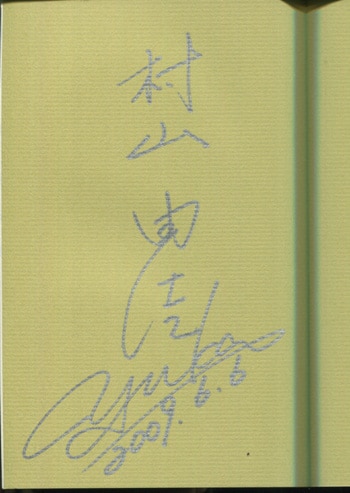 村山
由佳
Yuka
2009.6.6